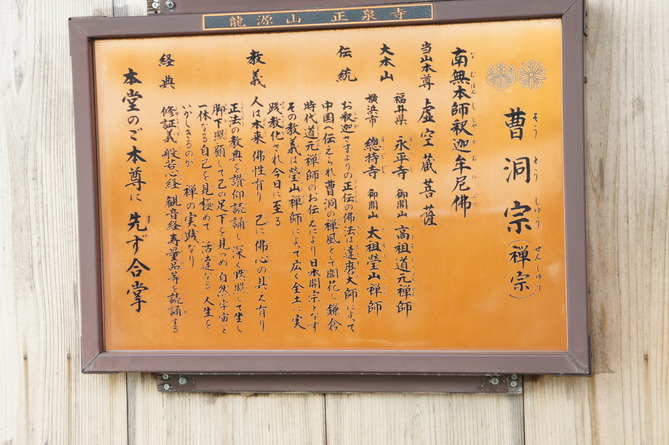 龍源山 正泉寺
曹洞宗(禅宗)
そうとうしゅう ぜんしゅう
南無本師釈迦牟尼佛
当山本尊 虚空蔵菩薩
大本山
福井県 永平寺 御開山 高祖道元禅師
横浜市 總持寺 御開山 太祖瑩山禅師
伝統
お釈迦さまよりの正伝の佛法は達磨大師によって
中国へ伝えられ曹洞の禅風として開花し鎌倉
時代道元禅師のお伝えにより日本開宗となす
その教義は瑩山禅師によって広く全土に実
践教化され今日に至る
教義
人は本来佛性有り 己に佛心の具え有り
正法の教典を讃仰読誦し深く映照して坐し
脚下照顧して己の足下を見つめ自然宇宙と
一体なる自己を見極めて活達なる人生を
いかしきるのが 禅の実践なり
経典
修証義 般若心経 観音経 寿量品等を読誦する
本堂のご本尊に先ず合掌